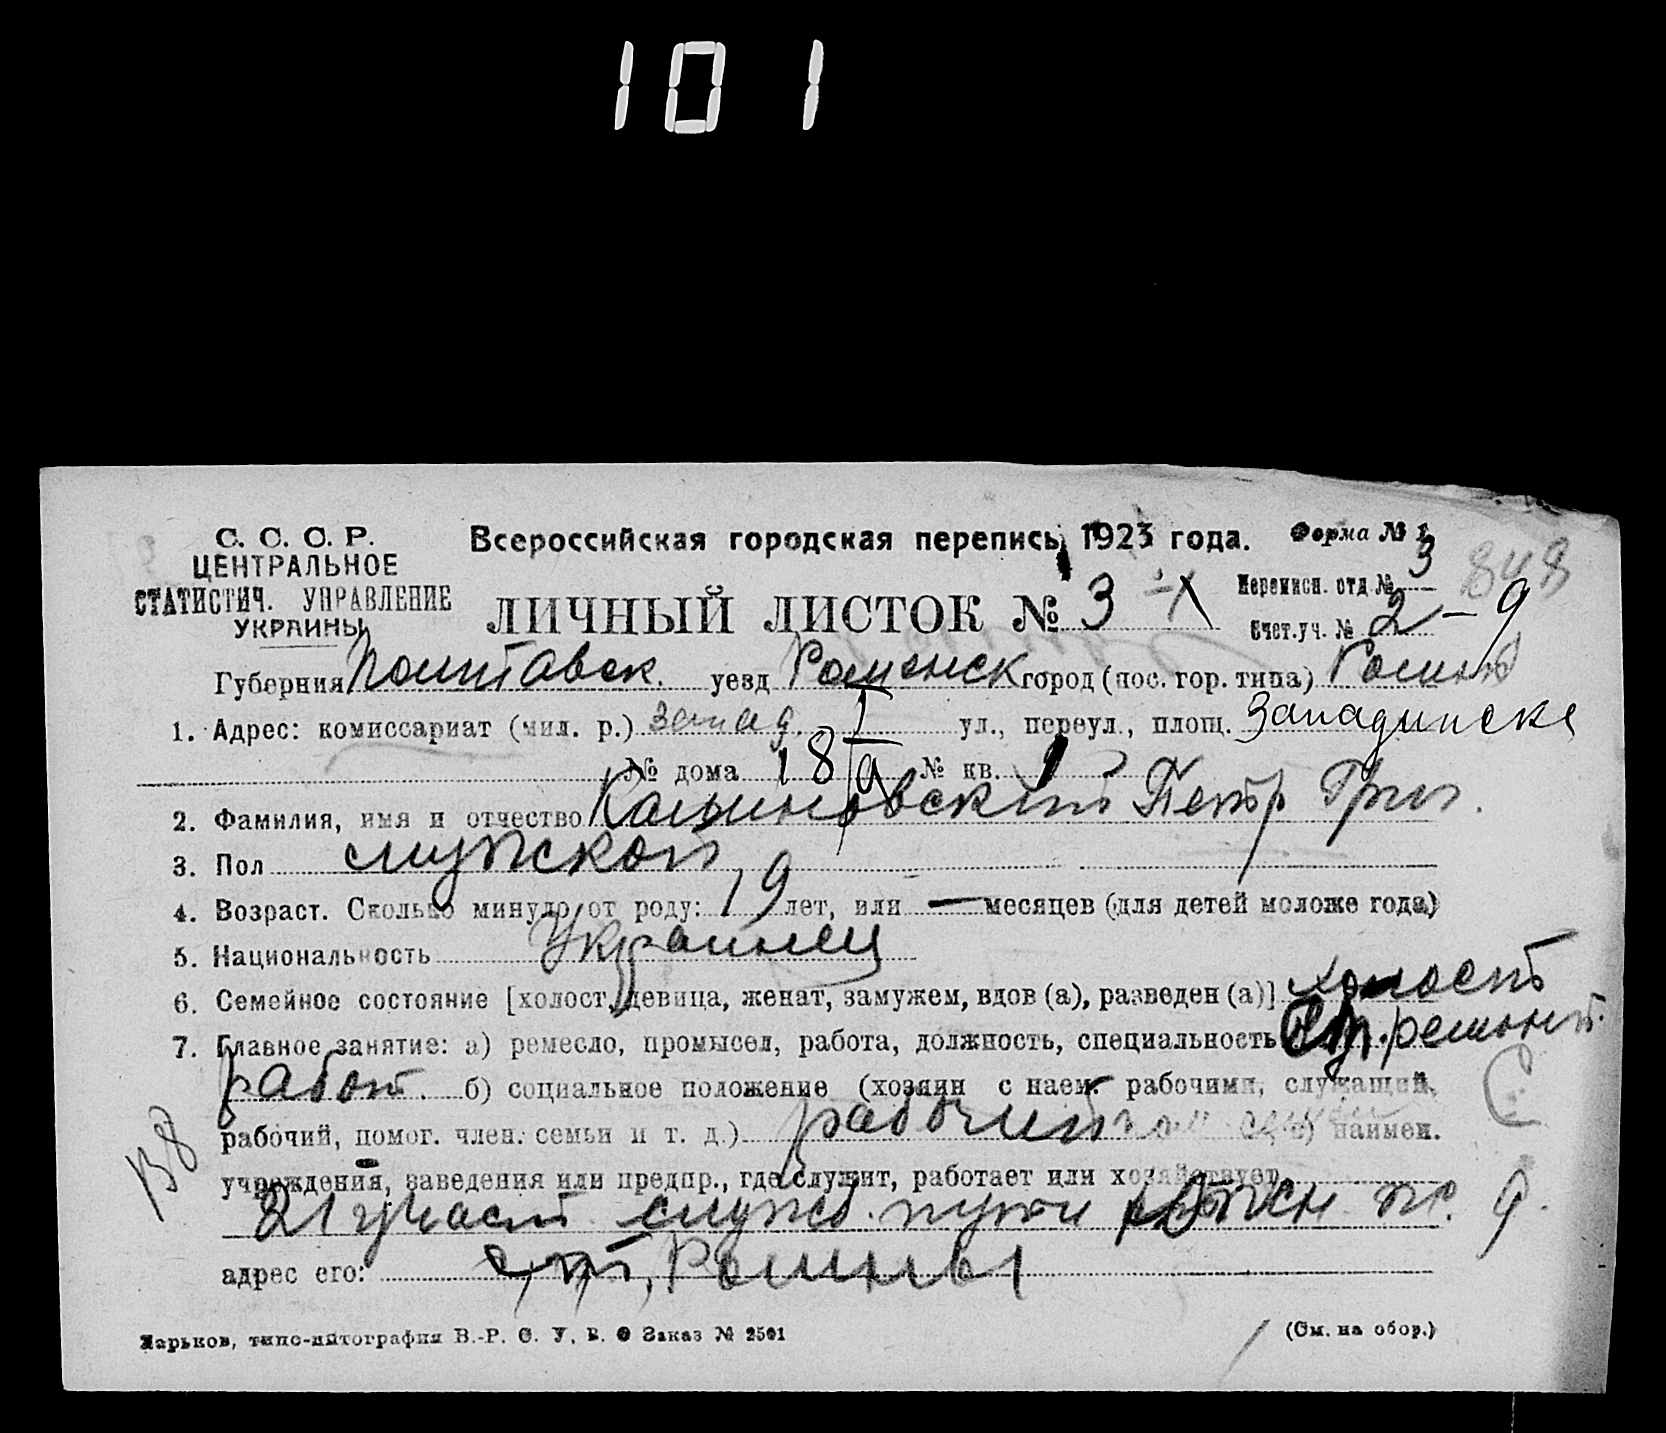 101
С. С. С. Р.
ЦЕНТРАЛЬНОЕ
СТАТИСТИЧ. УПРАВЛЕНИЕ
УКРАИНЫ
Всероссийская городская перепись 1923 года.
Форма № 1
ЛИЧНЫЙ ЛИСТОК № 3
Переписн. отд № 3
848
Счет.уч. № 2 – 9
Губерния Полтавск. уезд Роменск город (пос. гор. типа) Ромны
1. Адрес: комиссариат (мил. р.) запад. ул., переул., площ. Западинска
№ дома 18 № кв. 1
2. Фамилия, имя и отчество Калиновский Петр Григ.
3. Пол мужской
4. Возраст. Сколько минуло от роду: 19 лет, или — месяцев (для детей моложе года)
5. Национальность Украинец
6. Семейное состояние [холост, девица, женат, замужем, вдов (а), разведен (а)] холостъ
7. Главное занятие: а) ремесло, промысел, работа, должность, специальность ремонт.
работ. б) социальное положение (хозяин с наем. рабочими, служащий,
рабочий, помог. член. семьи и т. д.) рабочий в) наимен.
В8
учреждения, заведения или предпр., где служит, работает или хозяйствует
21 участ служб. пути ж. д.
адрес его: ст. Ромны
Харьков, типо-литография В.-Р. С. У. В. О Заказ № 2501
(См. на обор.)